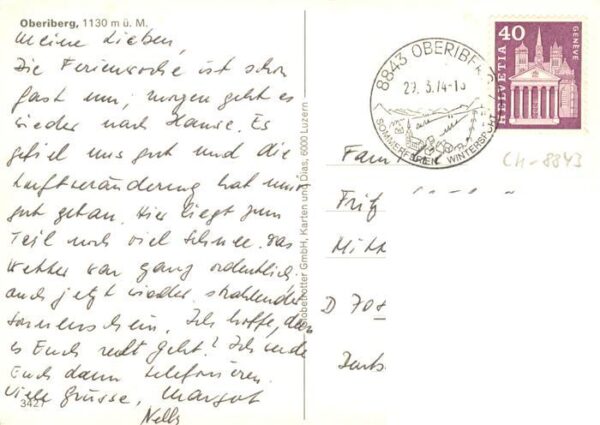 Oberiberg, 1130 m ü. M.
Meine Lieben,
Die Ferienwoche ist schon
fast um, morgen geht es
wieder nach Hause. Es
gefiel uns gut und die
Luftveränderung hat uns
gut getan. Hier liegt zum
Teil noch viel Schnee. Das
Wetter war ganz ordentlich,
auch jetzt wieder strahlender
Sonnenschein. Ich hoffe, dass
es Euch recht geht! Ich werde
Euch dann telefonieren.
Viele Grüsse, Margot
Nelly
3427
Globetrotter GmbH, Karten und Dias, 6000 Luzern
8843 OBERIBE
29.3.74-1
SOMMERFERIEN WINTERSPORT
40
HELVETIA
GENÈVE
CH-8843
Fam
Mitt
D 70